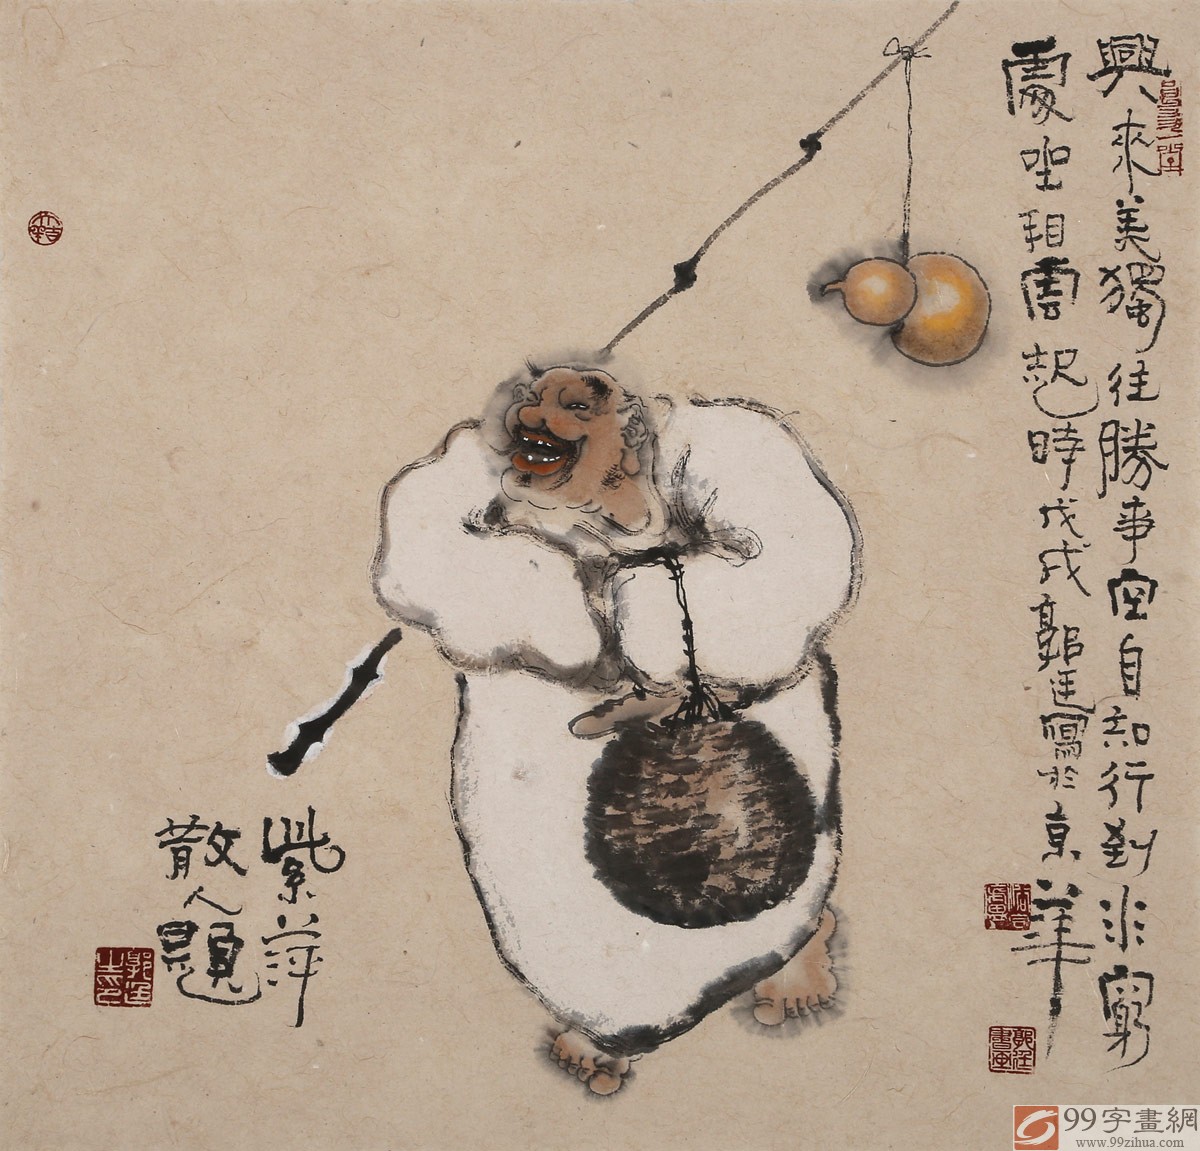 興來美獨往勝事空自知行到水窮
處坐看雲起時戊戌郭廷寫於京華
紫萍
散人題
99字畫網
www.99zihua.com